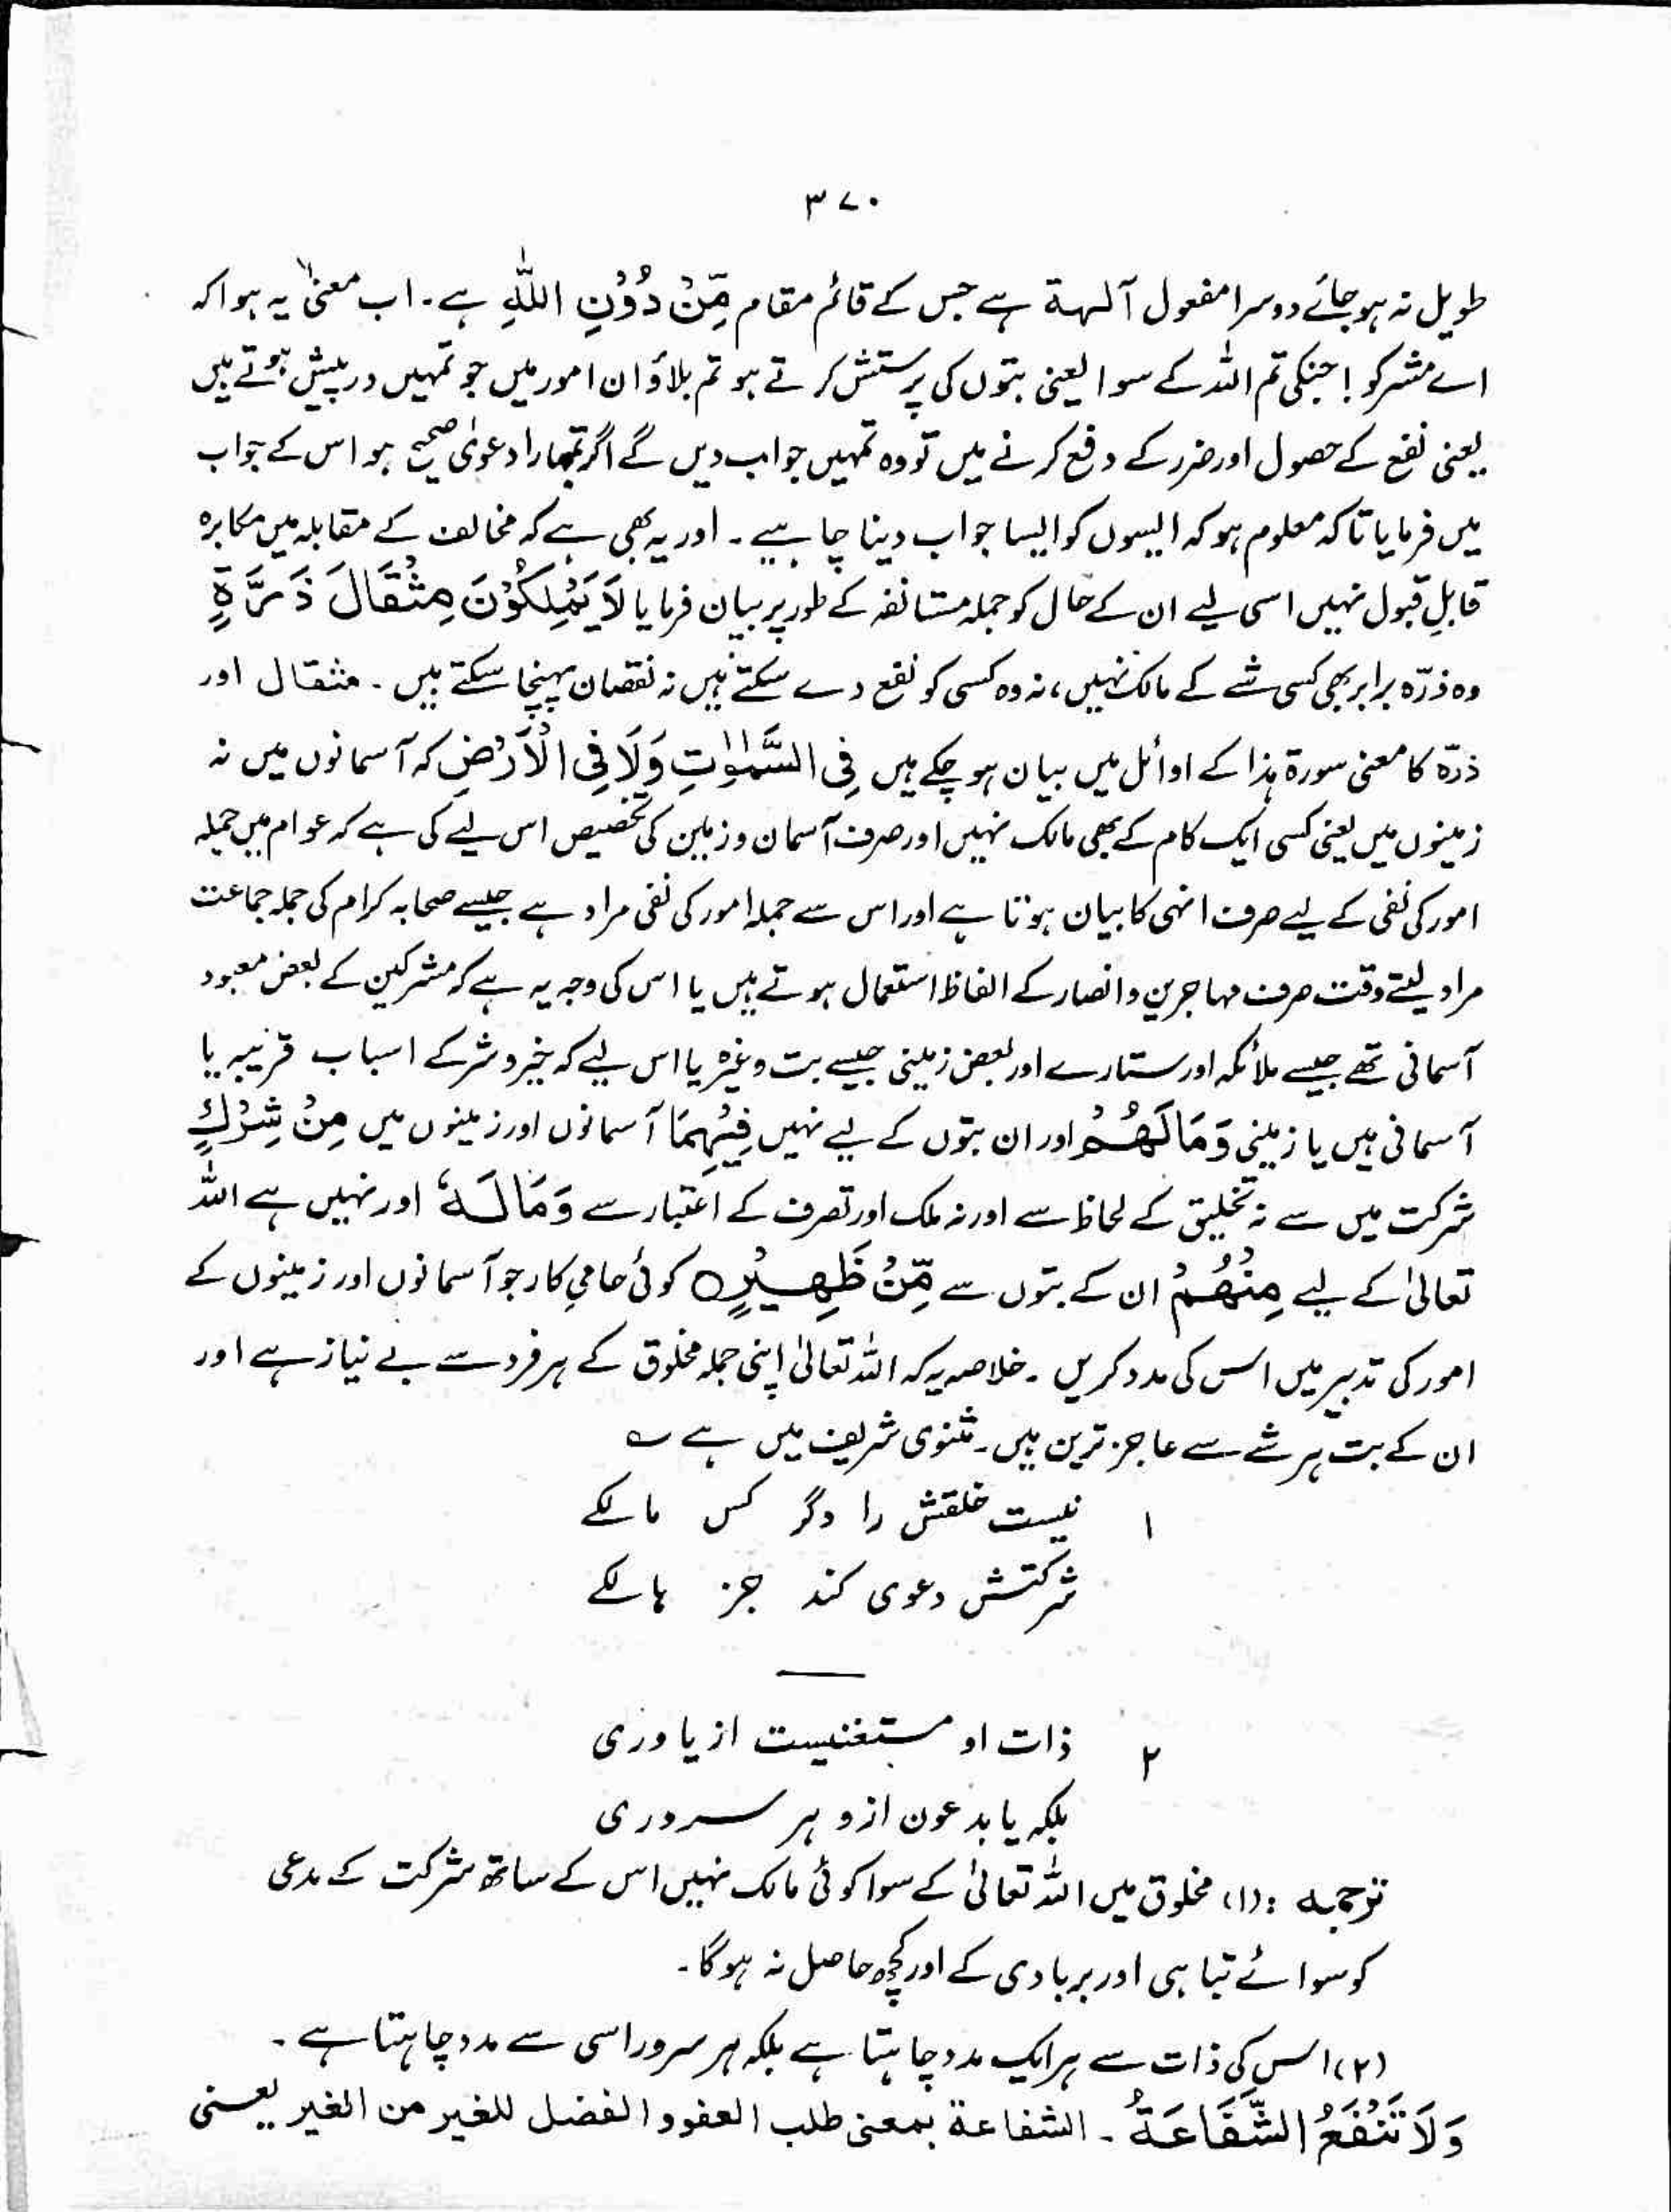 ۳۷۰
طویل نہ ہو جائے دوسرا مفعول آلہۃ ہے جس کے قائم مقام مِّنْ دُوْنِ اللّٰهِ ہے۔ اب معنیٰ یہ ہوا کہ
اے مشرکو! جنکی تم اللہ کے سوا یعنی بتوں کی پرستش کرتے ہو تم بلاؤ ان امور میں جو تمہیں درپیش ہوتے ہیں
یعنی نفع کے حصول اور ضرر کے دفع کرنے میں تو وہ تمہیں جواب دیں گے اگر تمہارا دعویٰ صحیح ہو اس کے جواب
میں فرمایا تاکہ معلوم ہو کہ ایسوں کو ایسا جواب دینا چاہیے۔ اور یہ بھی ہے کہ مخالف کے مقابلہ میں مکابرہ
قابلِ قبول نہیں اسی لیے ان کے حال کو جملہ مستانفہ کے طور پر بیان فرمایا لَا يَمْلِكُوْنَ مِثْقَالَ ذَرَّةٍ
وہ ذرّہ برابر بھی کسی شے کے مالک نہیں، نہ وہ کسی کو نفع دے سکتے ہیں نہ نقصان پہنچا سکتے ہیں۔ مثقال اور
ذرّہ کا معنی سورۃ ہٰذا کے اوائل میں بیان ہو چکے ہیں فِی السَّمٰوٰتِ وَلَا فِی الْاَرْضِ کہ آسمانوں میں نہ
زمینوں میں یعنی کسی ایک کام کے بھی مالک نہیں اور صرف آسمان و زمین کی تخصیص اس لیے کی ہے کہ عوام میں جملہ
امور کی نفی کے لیے صرف انہی کا بیان ہوتا ہے اور اس سے جملہ امور کی نفی مراد ہے جیسے صحابہ کرام کی جملہ جماعت
مراد لیتے وقت صرف مہاجرین و انصار کے الفاظ استعمال ہوتے ہیں یا اس کی وجہ یہ ہے کہ مشرکین کے بعض معبود
آسمانی تھے جیسے ملائکہ اور ستارے اور بعض زمینی جیسے بت وغیرہ یا اس لیے کہ خیر و شر کے اسباب قریبہ یا
آسمانی ہیں یا زمینی وَمَا لَهُمْ اور ان بتوں کے لیے نہیں فِيْهِمَا آسمانوں اور زمینوں میں مِنْ شِرْكٍ
شرکت میں سے نہ تخلیق کے لحاظ سے اور نہ ملک اور تصرف کے اعتبار سے وَمَا لَهٗ اور نہیں ہے اللہ
تعالیٰ کے لیے مِنْهُمْ ان کے بتوں سے مِّنْ ظَهِيْرٍ ○ کوئی حامیِ کار جو آسمانوں اور زمینوں کے
امور کی تدبیر میں اس کی مدد کریں۔ خلاصہ یہ کہ اللہ تعالیٰ اپنی جملہ مخلوق کے ہر فرد سے بے نیاز ہے اور
ان کے بت ہر شے سے عاجز ترین ہیں۔ مثنوی شریف میں ہے ؎
۱ نیست خلقش را دگر کس مالکے
شرکتش دعوی کند جز ہالکے
۲ ذات او مستغنیست از یاوری
بلکہ یابد عون ازو ہر سروری
ترجمہ: (۱) مخلوق میں اللہ تعالیٰ کے سوا کوئی مالک نہیں اس کے ساتھ شرکت کے مدعی
کو سوائے تباہی اور بربادی کے اور کچھ حاصل نہ ہوگا۔
(۲) اس کی ذات سے ہر ایک مدد چاہتا ہے بلکہ ہر سرور اسی سے مدد چاہتا ہے۔
وَلَا تَنْفَعُ الشَّفَاعَةُ۔ الشفاعة بمعنی طلب العفو و الفضل للغیر من الغیر یعنی